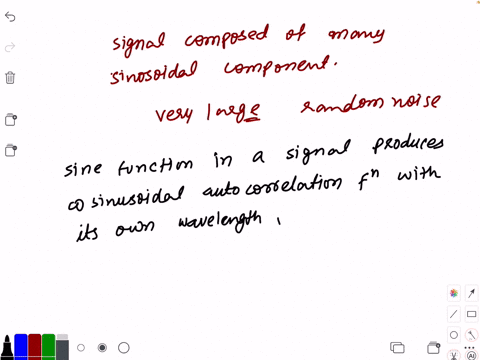 signal composed of many
sinosoidal component.
very large random noise
sine function in a signal produces
cosinusoidal autocorrelation fⁿ with
its own wavelength,